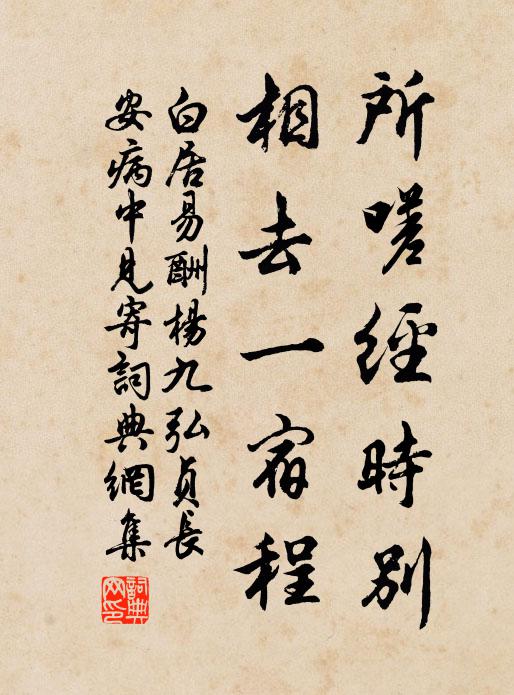 所嗟經時別
相去一宿程
白居易酬楊九弘貞長
安病中見寄詞典網集
詞典
網印